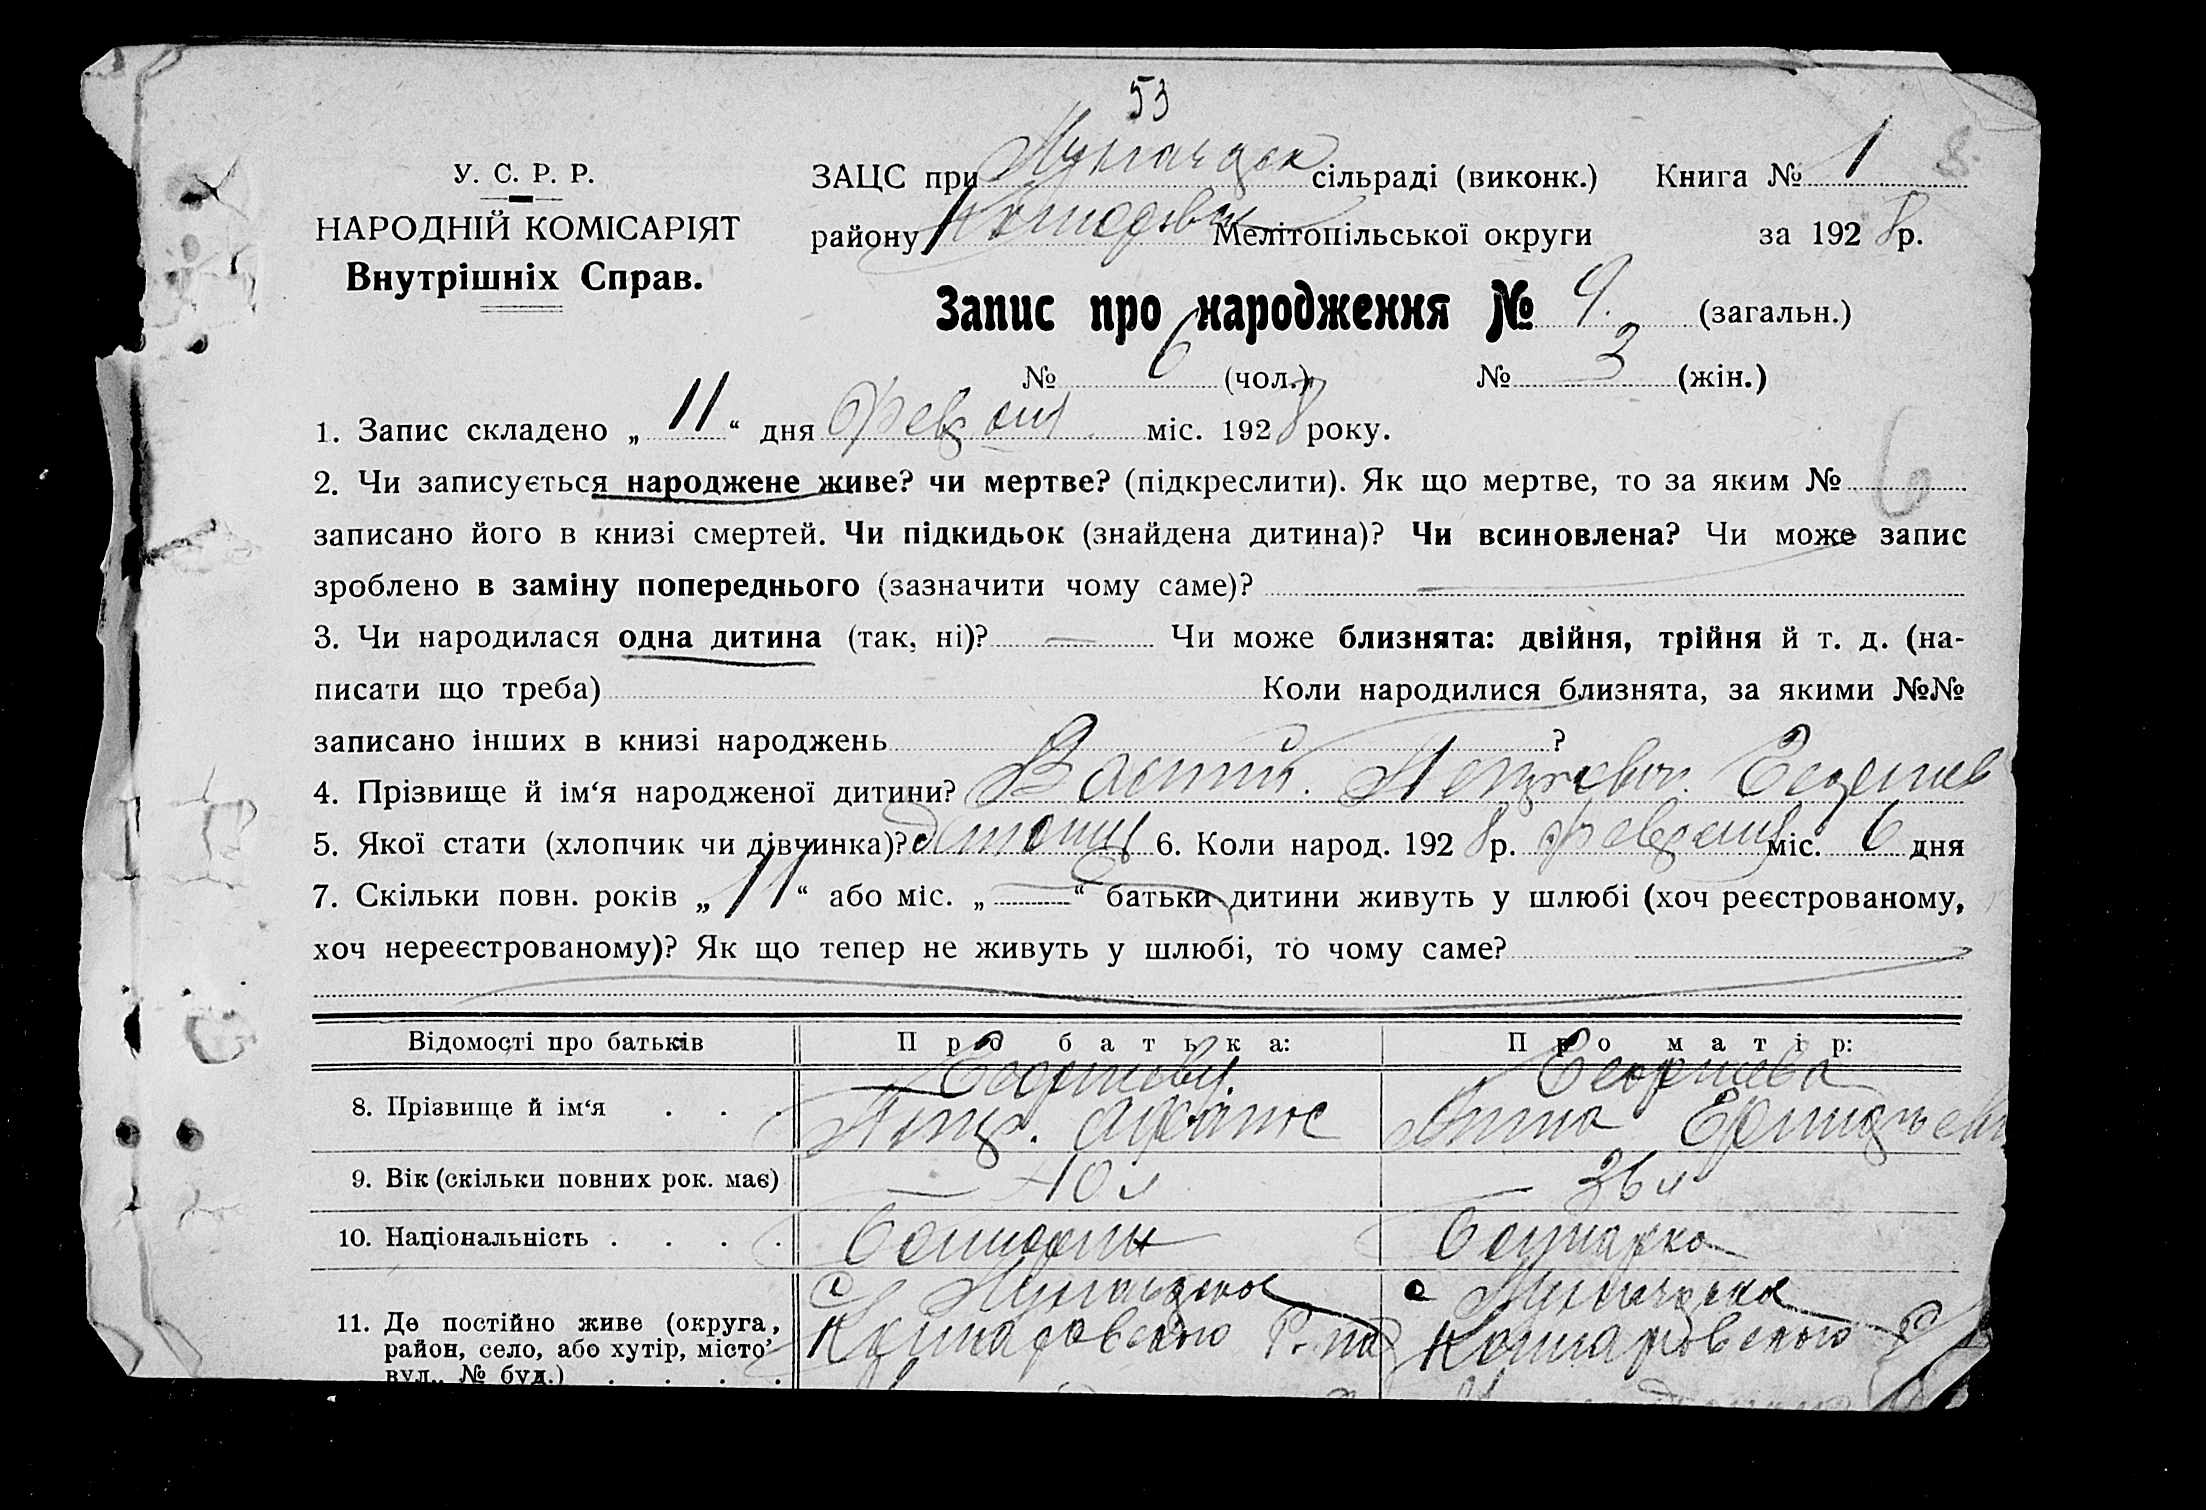 53
ЗАЦС при сільраді (виконк.) Книга № 1
У. С. Р. Р.
НАРОДНІЙ КОМІСАРІЯТ
Внутрішніх Справ.
району Мелітопільської округи за 1928 р.
Запис про народження № 9. (загальн.)
№ 6 (чол.) № 3 (жін.)
1. Запис складено „11“ дня февраля міс. 1928 року.
2. Чи записується народжене живе? чи мертве? (підкреслити). Як що мертве, то за яким №
6
записано його в книзі смертей. Чи підкидьок (знайдена дитина)? Чи всиновлена? Чи може запис
зроблено в заміну попереднього (зазначити чому саме)?
3. Чи народилася одна дитина (так, ні)? — Чи може близнята: двійня, трійня й т. д. (на-
писати що треба) Коли народилися близнята, за якими №№
записано інших в книзі народжень ?
4. Прізвище й ім‘я народженої дитини? Василий Петрович
5. Якої стати (хлопчик чи дівчинка)? 6. Коли народ. 1928 р. февраля міс. 6 дня
7. Скільки повн. років „11“ або міс. „—“ батьки дитини живуть у шлюбі (хоч реєстрованому,
хоч нереєстрованому)? Як що тепер не живуть у шлюбі, то чому саме?
Відомості про батьків Про батька: Про матір:
8. Прізвище й ім‘я . . . Петр Анна
9. Вік (скільки повних рок. має) — 40 л — 36 л
10. Національність . . . . болгарин болгарка
11. Де постійно живе (округа,
район, село, або хутір, місто,
вул., № буд.) . . . .
с с